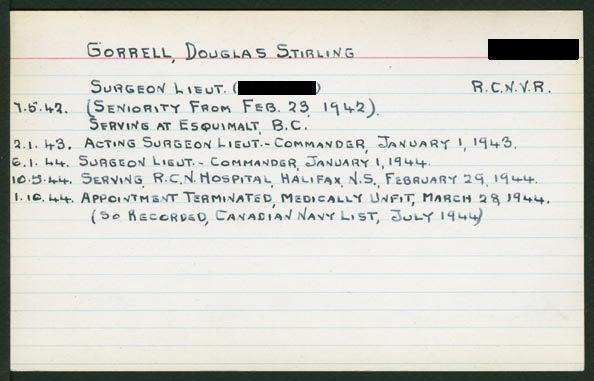 GORRELL, DOUGLAS STIRLING
SURGEON LIEUT. ( ) R.C.N.V.R.
7.5.42. (SENIORITY FROM FEB. 23, 1942).
SERVING AT ESQUIMALT, B.C.
2.1.43. ACTING SURGEON LIEUT.-COMMANDER, JANUARY 1, 1943.
6.1.44. SURGEON LIEUT.-COMMANDER, JANUARY 1, 1944.
10.5.44. SERVING, R.C.N. HOSPITAL, HALIFAX, N.S., FEBRUARY 29, 1944.
1.10.44. APPOINTMENT TERMINATED, MEDICALLY UNFIT, MARCH 28, 1944.
(SO RECORDED, CANADIAN NAVY LIST, JULY 1944)